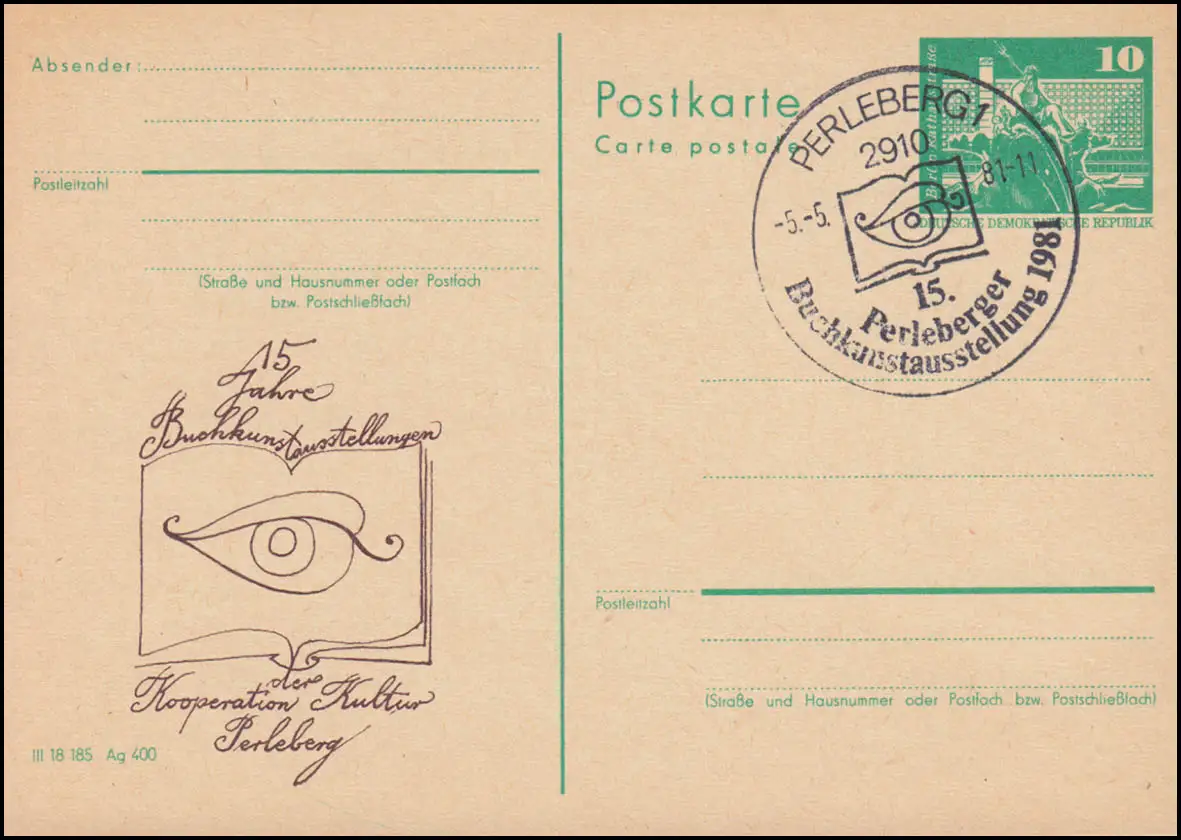 Absender:
Postleitzahl
(Straße und Hausnummer oder Postfach
bzw. Postschließfach)
15
Jahre
Buchkunstausstellungen
Kooperation der Kultur
Perleberg
III 18 185 Ag 400
Postkarte
Carte postale
10
DEUTSCHE DEMOKRATISCHE REPUBLIK
PERLEBERG 1
2910
-5.-5. 81-11
15.
Perleberger
Buchkunstausstellung 1981
Postleitzahl
(Straße und Hausnummer oder Postfach bzw. Postschließfach)